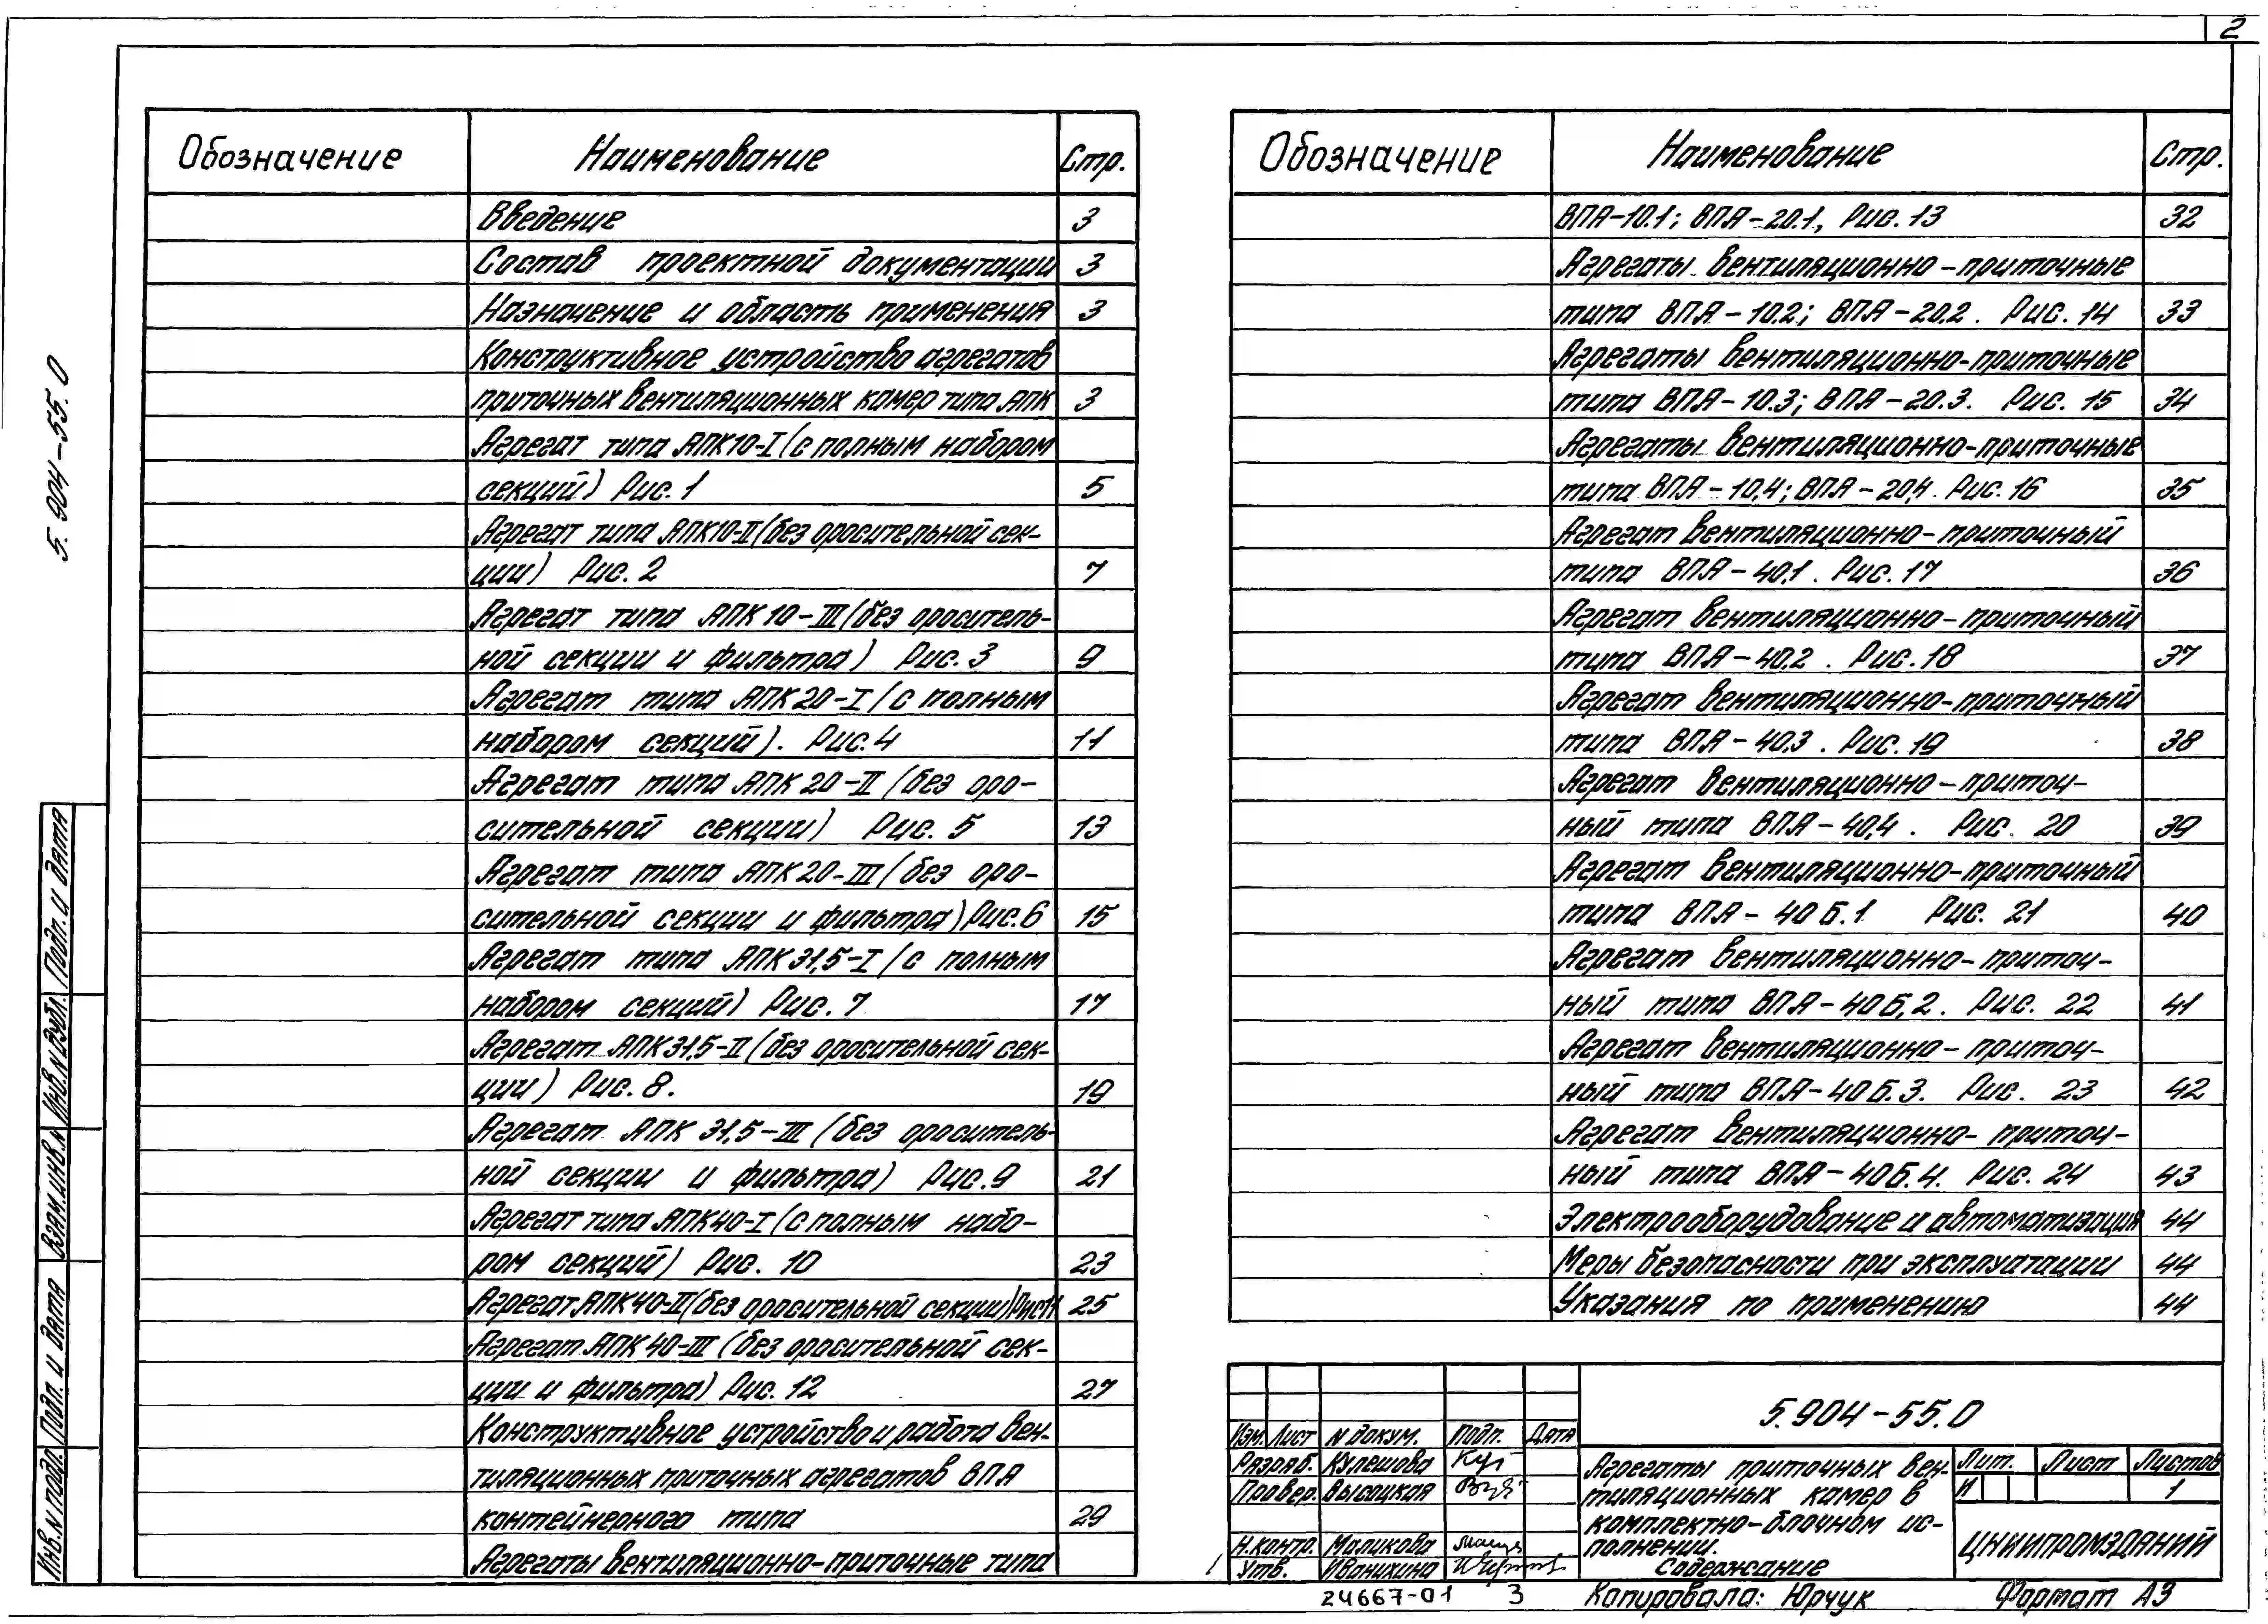 2
Обозначение Наименование Стр.
Введение 3
Состав проектной документации 3
Назначение и область применения 3
Конструктивное устройство агрегатов
приточных вентиляционных камер типа АПК 3
Агрегат типа АПК10-I (с полным набором
секций) Рис. 1 5
Агрегат типа АПК10-II (без оросительной сек-
ции) Рис. 2 7
Агрегат типа АПК 10-III (без ороситель-
ной секции и фильтра) Рис. 3 9
Агрегат типа АПК 20-I (с полным
набором секций). Рис. 4 11
Агрегат типа АПК 20-II (без оро-
сительной секции) Рис. 5 13
Агрегат типа АПК 20-III (без оро-
сительной секции и фильтра) Рис. 6 15
Агрегат типа АПК 31,5-I (с полным
набором секций) Рис. 7 17
Агрегат АПК 31,5-II (без оросительной сек-
ции) Рис. 8. 19
Агрегат АПК 31,5-III (без ороситель-
ной секции и фильтра) Рис. 9 21
Агрегат типа АПК40-I (с полным набо-
ром секций) Рис. 10 23
Агрегат АПК40-II (без оросительной секции) Рис 11 25
Агрегат АПК 40-III (без оросительной сек-
ции и фильтра) Рис. 12 27
Конструктивное устройство и работа вен-
тиляционных приточных агрегатов ВПА
контейнерного типа 29
Агрегаты вентиляционно-приточные типа
Обозначение Наименование Стр.
ВПА-10.1; ВПА-20.1, Рис. 13 32
Агрегаты вентиляционно-приточные
типа ВПА-10.2; ВПА-20.2. Рис. 14 33
Агрегаты вентиляционно-приточные
типа ВПА-10.3; ВПА-20.3. Рис. 15 34
Агрегаты вентиляционно-приточные
типа ВПА-10,4; ВПА-20,4. Рис. 16 35
Агрегат вентиляционно-приточный
типа ВПА-40,1. Рис. 17 36
Агрегат вентиляционно-приточный
типа ВПА-40.2. Рис. 18 37
Агрегат вентиляционно-приточный
типа ВПА-40.3. Рис. 19 38
Агрегат вентиляционно-приточ-
ный типа ВПА-40,4. Рис. 20 39
Агрегат вентиляционно-приточный
типа ВПА-40 Б.1 Рис. 21 40
Агрегат вентиляционно-приточ-
ный типа ВПА-40 Б,2. Рис. 22 41
Агрегат вентиляционно-приточ-
ный типа ВПА-40 Б.3. Рис. 23 42
Агрегат вентиляционно-приточ-
ный типа ВПА-40 Б.4. Рис. 24 43
Электрооборудование и автоматизация 44
Меры безопасности при эксплуатации 44
Указания по применению 44
5.904-55.0
Изм. Лист N докум. Подп. Дата
Разраб. Кулешова
Провер. Высоцкая
Н.контр. Маликова
Утв. Иванихина
Агрегаты приточных вен-
тиляционных камер в
комплектно-блочном ис-
полнении.
Содержание
Лит. Лист Листов
И 1
ЦНИИПРОМЗДАНИЙ
24667-01 3 Копировала: Юрчук Формат А3
5.904-55.0
Подп. и дата
Инв.N дубл.
Взам.инв.N
Подп. и дата
Инв.N подл.